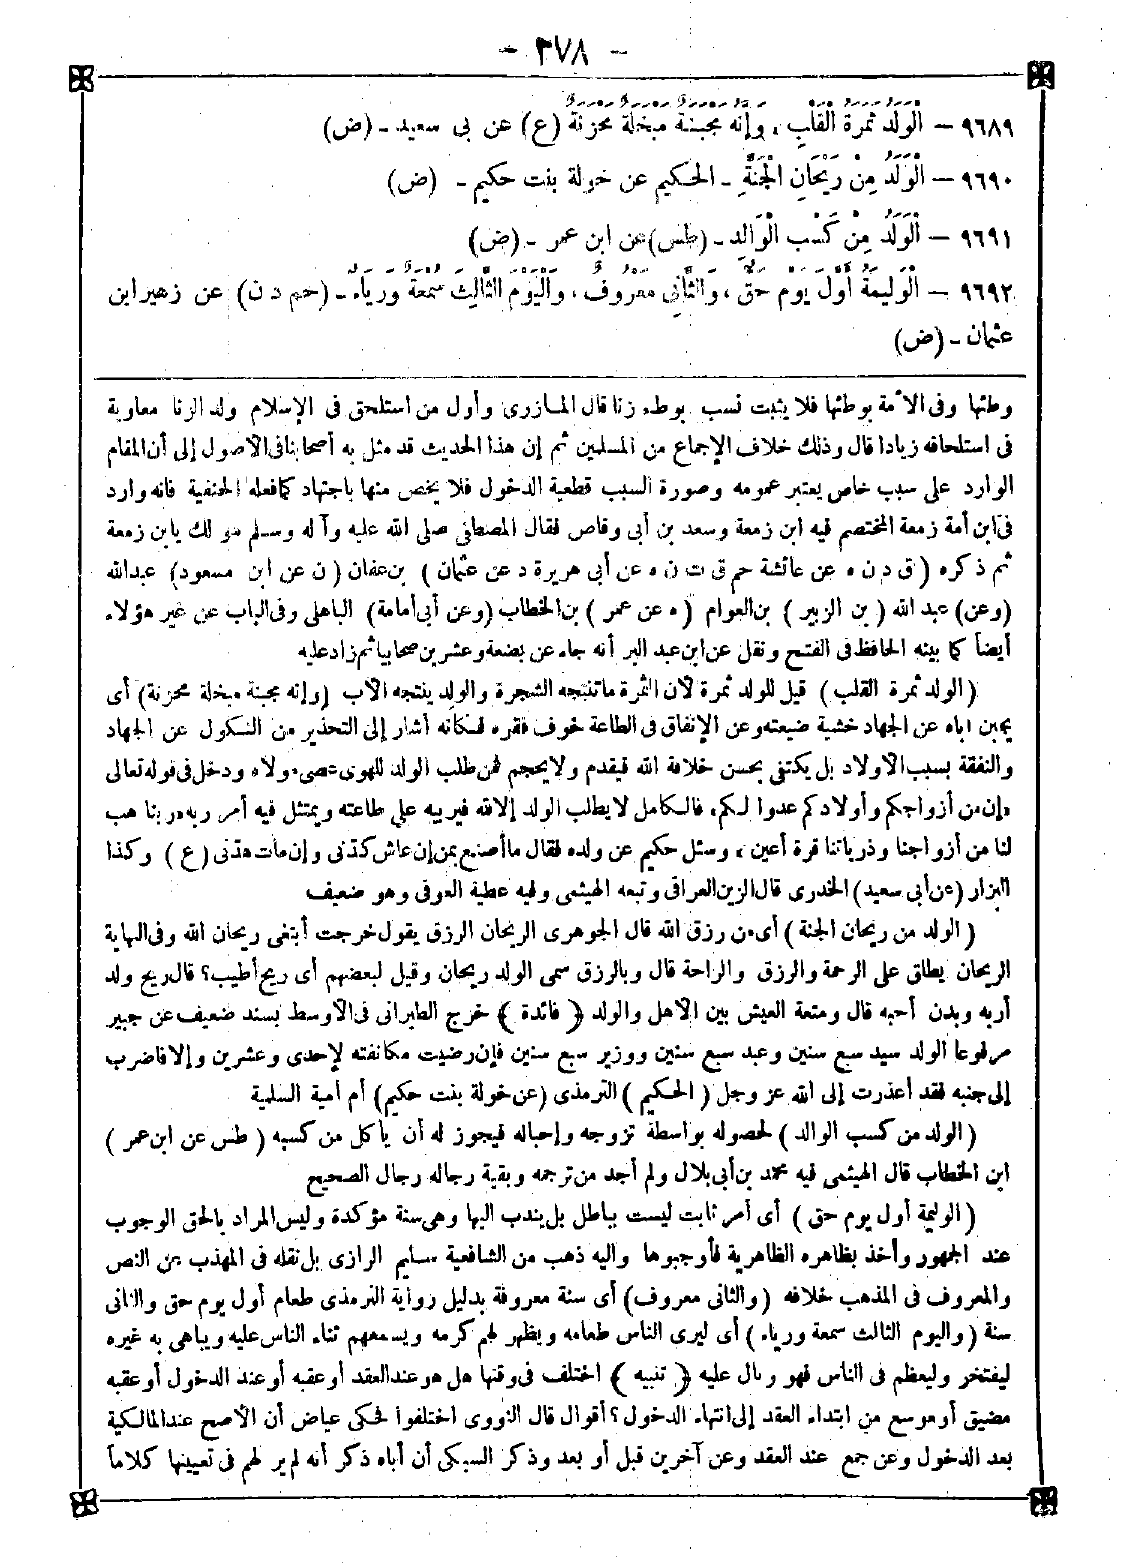 - ٣٧٨ -
٩٦٨٩ - الْوَلَدُ ثَمَرَةُ الْقَلْبِ، وَإِنَّهُ مَجْبَنَةٌ مَبْخَلَةٌ مَحْزَنَةٌ (ع) عن بى سعيد - (ض)
٩٦٩٠ - الْوَلَدُ مِنْ رَيْحَانِ الْجَنَّةِ - الحكيم عن خولة بنت حكيم - (ض)
٩٦٩١ - الْوَلَدُ مِنْ كَسْبِ الْوَالِدِ - (طس) عن ابن عمر - (ض)
٩٦٩٢ - الْوَلِيمَةُ أَوَّلَ يَوْمٍ حَقٌّ، وَالثَّانِى مَعْرُوفٌ، وَالْيَوْمَ الثَّالِثَ سُمْعَةٌ وَرِيَاءٌ - (حم د ن) عن زهير ابن
عثمان - (ض)
وطئها وفى الأمة بوطئها فلا يثبت نسب بوطء زنا قال المازرى وأول من استلحق فى الإسلام ولد الزنا معاوية
فى استلحاقه زيادا قال وذلك خلاف الإجماع من المسلمين ثم إن هذا الحديث قد مثل به أصحابنا فى الأصول إلى أن المقام
الوارد على سبب خاص يعتبر عمومه وصورة السبب قطعية الدخول فلا يخص منها باجتهاد كما فعله الحنفية فانه وارد
فى ابن أمة زمعة المختصم فيه ابن زمعة وسعد بن أبى وقاص فقال المصطفى صلى الله عليه وآله وسلم هو لك يا بن زمعة
ثم ذكره (ق د ن ه عن عائشة حم ق ت ن ه عن أبى هريرة د عن عثمان) بن عفان (ن عن ابن مسعود) عبدالله
(وعن) عبد الله (بن الزبير) بن العوام (ه عن عمر) بن الخطاب (وعن أبى أمامة) الباهلى وفى الباب عن غير هؤلاء
أيضاً كما بينه الحافظ فى الفتح ونقل عن ابن عبد البر أنه جاء عن بضعة وعشرين صحابيا ثم زاد عليه
(الولد ثمرة القلب) قيل للولد ثمرة لأن الثمرة ما تنتجه الشجرة والولد ينتجه الأب (وإنه مجبنة مبخلة محزنة) أى
يجبن أباه عن الجهاد خشية ضيعته وعن الإنفاق فى الطاعة خوف فقره فكأنه أشار إلى التحذير من النكول عن الجهاد
والنفقة بسبب الأولاد بل يكتفى بحسن خلافة الله فيقدم ولا يحجم فمن طلب الولد للهوى عصى مولاه ودخل فى قوله تعالى
«إن من أزواجكم وأولادكم عدوا لكم» فالكامل لا يطلب الولد إلا لله فيربيه على طاعته ويمتثل فيه أمر ربه «ربنا هب
لنا من أزواجنا وذرياتنا قرة أعين» وسئل حكيم عن ولده فقال ما أصنع بمن إن عاش كدنى وإن مات هدنى (ع) وكذا
البزار (عن أبى سعيد) الخدرى قال الزين العراقى وتبعه الهيثمى وفيه عطية العوفى وهو ضعيف
(الولد من ريحان الجنة) أى من رزق الله قال الجوهرى الريحان الرزق يقول خرجت أبتغى ريحان الله وفى النهاية
الريحان يطلق على الرحمة والرزق والراحة قال وبالرزق سمى الولد ريحان وقيل لبعضهم أى ريح أطيب؟ قال ريح ولد
أربه وبدن أحبه قال ومتعة العيش بين الأهل والولد (فائدة) خرج الطبرانى فى الأوسط بسند ضعيف عن جبير
مرفوعا الولد سيد سبع سنين وعبد سبع سنين ووزير سبع سنين فإن رضيت مكانفته لإحدى وعشرين وإلا فاضرب
إلى جنبه فقد أعذرت إلى الله عز وجل (الحكيم) الترمذى (عن خولة بنت حكيم) أم أمية السلمية
(الولد من كسب الوالد) لحصوله بواسطة تزوجه وإحباله فيجوز له أن يأكل من كسبه (طس عن ابن عمر)
ابن الخطاب قال الهيثمى فيه محمد بن أبى بلال ولم أجد من ترجمه وبقية رجاله رجال الصحيح
(الوليمة أول يوم حق) أى أمر ثابت ليست بباطل بل يندب اليها وهى سنة مؤكدة وليس المراد بالحق الوجوب
عند الجمهور وأخذ بظاهره الظاهرية فأوجبوها واليه ذهب من الشافعية سليم الرازى بل نقله فى المهذب عن النص
والمعروف فى المذهب خلافه (والثانى معروف) أى سنة معروفة بدليل رواية الترمذى طعام أول يوم حق والثانى
سنة (واليوم الثالث سمعة ورياء) أى ليرى الناس طعامه ويظهر لهم كرمه ويسمعهم ثناء الناس عليه ويباهى به غيره
ليفتخر وليعظم فى الناس فهو وبال عليه (تنبيه) اختلف فى وقتها هل هو عند العقد أو عقبه أو عند الدخول أو عقبه
مضيق أو موسع من ابتداء العقد إلى انتهاء الدخول؟ أقوال قال النووى اختلفوا فحكى عياض أن الأصح عند المالكية
بعد الدخول وعن جمع عند العقد وعن آخرين قبل أو بعد وذكر السبكى أن أباه ذكر أنه لم ير لهم فى تعيينها كلاماً